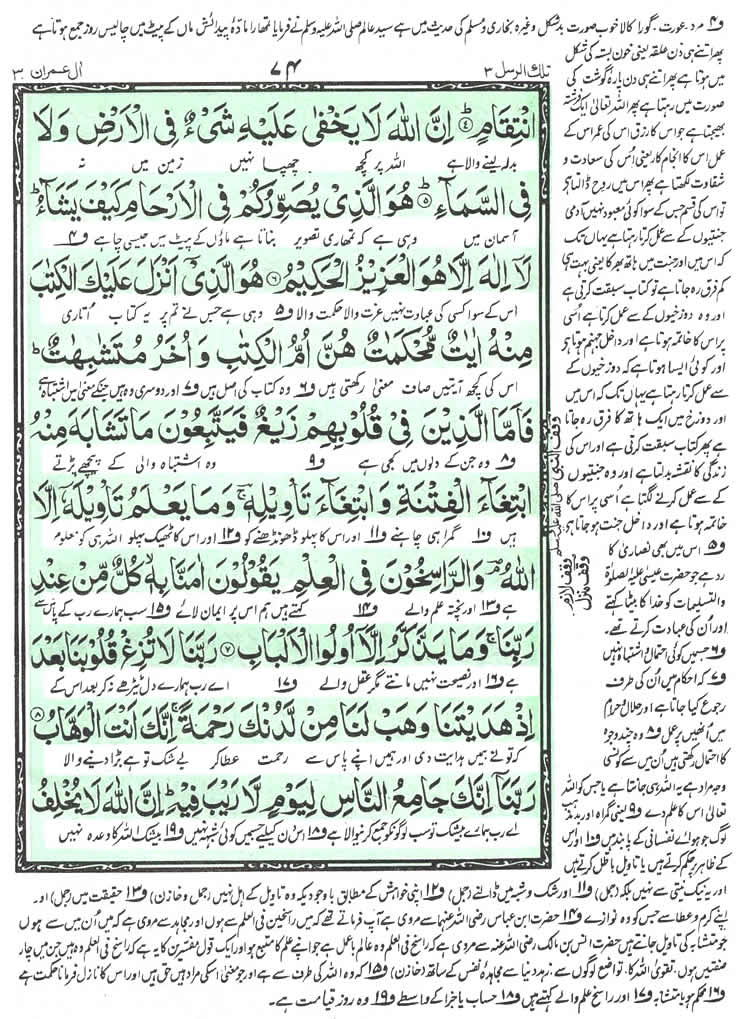 و۴ مرد۔ عورت۔ گورا کالا خوب صورت بدشکل وغیرہ بخاری و مسلم کی حدیث میں ہے سید عالم صلی اللہ علیہ وسلم نے فرمایا تمہارا مادۂ پیدائش ماں کے پیٹ میں چالیس روز جمع ہوتا ہے
تلك الرسل ۳
۷۴
ال عمران ۳
انْتِقَامٍ ۴ اِنَّ اللّٰهَ لَا يَخْفٰى عَلَيْهِ شَیْءٌ فِی الْاَرْضِ وَلَا
بدلہ لینے والا ہے اللہ پر کچھ چھپا نہیں زمین میں نہ
فِی السَّمَآءِ ۵ هُوَ الَّذِیْ يُصَوِّرُكُمْ فِی الْاَرْحَامِ كَيْفَ يَشَآءُ
آسمان میں وہی ہے کہ تمہاری تصویر بناتا ہے ماؤں کے پیٹ میں جیسی چاہے و۴
لَآ اِلٰهَ اِلَّا هُوَ الْعَزِيْزُ الْحَكِيْمُ ۶ هُوَ الَّذِیْۤ اَنْزَلَ عَلَيْكَ الْكِتٰبَ
اس کے سوا کسی کی عبادت نہیں عزت والا حکمت والا و۵ وہی ہے جس نے تم پر یہ کتاب اُتاری
مِنْهُ اٰيٰتٌ مُّحْكَمٰتٌ هُنَّ اُمُّ الْكِتٰبِ وَاُخَرُ مُتَشٰبِهٰتٌ
اس کی کچھ آیتیں صاف معنیٰ رکھتی ہیں و۶ وہ کتاب کی اصل ہیں و۷ اور دوسری وہ ہیں جنکے معنی میں اشتباہ ہے
فَاَمَّا الَّذِيْنَ فِیْ قُلُوْبِهِمْ زَيْغٌ فَيَتَّبِعُوْنَ مَا تَشَابَهَ مِنْهُ
و۸ وہ جن کے دلوں میں کجی ہے و۹ وہ اشتباہ والی کے پیچھے پڑتے
ابْتِغَآءَ الْفِتْنَةِ وَابْتِغَآءَ تَاْوِيْلِهٖ وَمَا يَعْلَمُ تَاْوِيْلَهٗۤ اِلَّا
ہیں و۱۰ گمراہی چاہنے و۱۱ اور اس کا پہلو ڈھونڈھنے کو و۱۲ اور اس کا ٹھیک پہلو اللہ ہی کو معلوم
اللّٰهُ وَالرّٰسِخُوْنَ فِی الْعِلْمِ يَقُوْلُوْنَ اٰمَنَّا بِهٖ كُلٌّ مِّنْ عِنْدِ
ہے و۱۳ اور پختہ علم والے و۱۴ کہتے ہیں ہم اس پر ایمان لائے و۱۵ سب ہمارے رب کے پاس سے
رَبِّنَا وَمَا يَذَّكَّرُ اِلَّاۤ اُولُوا الْاَلْبَابِ ۷ رَبَّنَا لَا تُزِغْ قُلُوْبَنَا بَعْدَ
ہے و۱۶ اور نصیحت نہیں مانتے مگر عقل والے و۱۷ اے رب ہمارے دل ٹیڑھے نہ کر بعد اس کے
اِذْ هَدَيْتَنَا وَهَبْ لَنَا مِنْ لَّدُنْكَ رَحْمَةً اِنَّكَ اَنْتَ الْوَهَّابُ ۸
کہ تو نے ہمیں ہدایت دی اور ہمیں اپنے پاس سے رحمت عطا کر بے شک تو ہے بڑا دینے والا
رَبَّنَاۤ اِنَّكَ جَامِعُ النَّاسِ لِيَوْمٍ لَّا رَيْبَ فِيْهِ اِنَّ اللّٰهَ لَا يُخْلِفُ
اے رب ہمارے بیشک تو سب لوگوں کو جمع کرنیوالا ہے و۱۸ اس دن کیلئے جس میں کوئی شبہ نہیں و۱۹ بیشک اللہ کا وعدہ نہیں
وقف النبی صلی اللہ علیہ وسلم
وقف لازم
وقف منزل
پھر اتنے ہی دن علقہ یعنی خون بستہ کی شکل
میں ہوتا ہے پھر اتنے ہی دن پارۂ گوشت کی
صورت میں رہتا ہے پھر اللہ تعالیٰ ایک فرشتہ
بھیجتا ہے جو اس کا رزق اس کی عمر اس کے
عمل اس کا انجام کار یعنی اُس کی سعادت و
شقاوت لکھتا ہے پھر اس میں روح ڈالتا ہے
تو اس کی قسم جس کے سوا کوئی معبود نہیں آدمی
جنتیوں کے سے عمل کرتا رہتا ہے یہاں تک
کہ اس میں اور جنت میں ہاتھ بھر کا یعنی بہت ہی
کم فرق رہ جاتا ہے تو کتاب سبقت کرتی ہے
اور وہ دوزخیوں کے سے عمل کرتا ہے اُسی
پر اس کا خاتمہ ہوتا ہے اور داخل جہنم ہوتا ہے
اور کوئی ایسا ہوتا ہے کہ دوزخیوں کے
سے عمل کرتا رہتا ہے یہاں تک کہ اس میں
اور دوزخ میں ایک ہاتھ کا فرق رہ جاتا
ہے پھر کتاب سبقت کرتی ہے اور اس کی
زندگی کا نقشہ بدلتا ہے اور وہ جنتیوں
کے سے عمل کرنے لگتا ہے اُسی پر اس کا
خاتمہ ہوتا ہے اور داخل جنت ہو جاتا ہے
و۵ اس میں بھی نصاریٰ کا
رد ہے جو حضرت عیسیٰ علیہ الصلوٰۃ
والتسلیمات کو خدا کا بیٹا کہتے
اور اُن کی عبادت کرتے تھے۔
و۶ جس میں کوئی احتمال و اشتباہ نہیں
و۷ کہ احکام میں اُن کی طرف
رجوع کیا جاتا ہے اور حلال و حرام
میں اُنھیں پر عمل و۸ وہ چند وجوہ
کا احتمال رکھتی ہیں اُن میں سے کونسی
وجہ مراد ہے یہ اللہ ہی جانتا ہے یا جس کو اللہ
تعالیٰ اس کا علم دے و۹ یعنی گمراہ اور بد مذہب
لوگ جو ہوائے نفسانی کے پابند ہیں و۱۰ اور اس
کے ظاہر پر حکم کرتے ہیں یا تاویل باطل کرتے ہیں
اور یہ نیک نیتی سے نہیں بلکہ (جمل) و۱۱ اور شک و شبہ میں ڈالنے (جمل) و۱۲ اپنی خواہش کے مطابق باوجودیکہ وہ تاویل کے اہل نہیں (جمل و خازن) و۱۳ حقیقت میں (جمل) اور
اپنے کرم و عطا سے جس کو وہ نوازے و۱۴ حضرت ابن عباس رضی اللہ عنہما سے مروی ہے آپ فرماتے تھے کہ میں راسخین فی العلم سے ہوں اور مجاہد سے مروی ہے کہ میں اُن میں سے ہوں
جو متشابہ کی تاویل جانتے ہیں حضرت انس بن مالک رضی اللہ عنہ سے مروی ہے کہ راسخ فی العلم وہ عالم باعمل ہے جو اپنے علم کا متبع ہو اور ایک قول مفسرین کا یہ ہے کہ راسخ فی العلم وہ ہیں جن میں چار
صفتیں ہوں۔ تقویٰ اللہ کا۔ تواضع لوگوں سے۔ زہد دنیا سے مجاہدہ نفس کے ساتھ (خازن) و۱۵ کہ وہ اللہ کی طرف سے ہے اور جو معنی اسکی مراد ہیں حق ہیں اور اس کا نازل فرمانا حکمت ہے
و۱۶ محکم ہو یا متشابہ و۱۷ اور راسخ علم والے کہتے ہیں و۱۸ حساب یا جزا کے واسطے و۱۹ وہ روز قیامت ہے۔